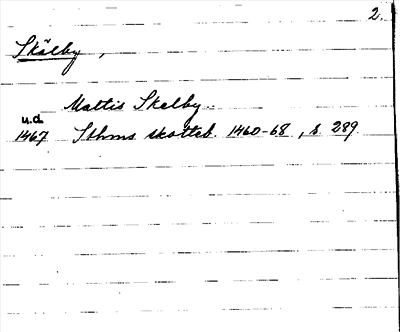 2.
Skälby,
Mattis Skelby..
u.d
1467 Sthms skotteb. 1460-68, s. 289.